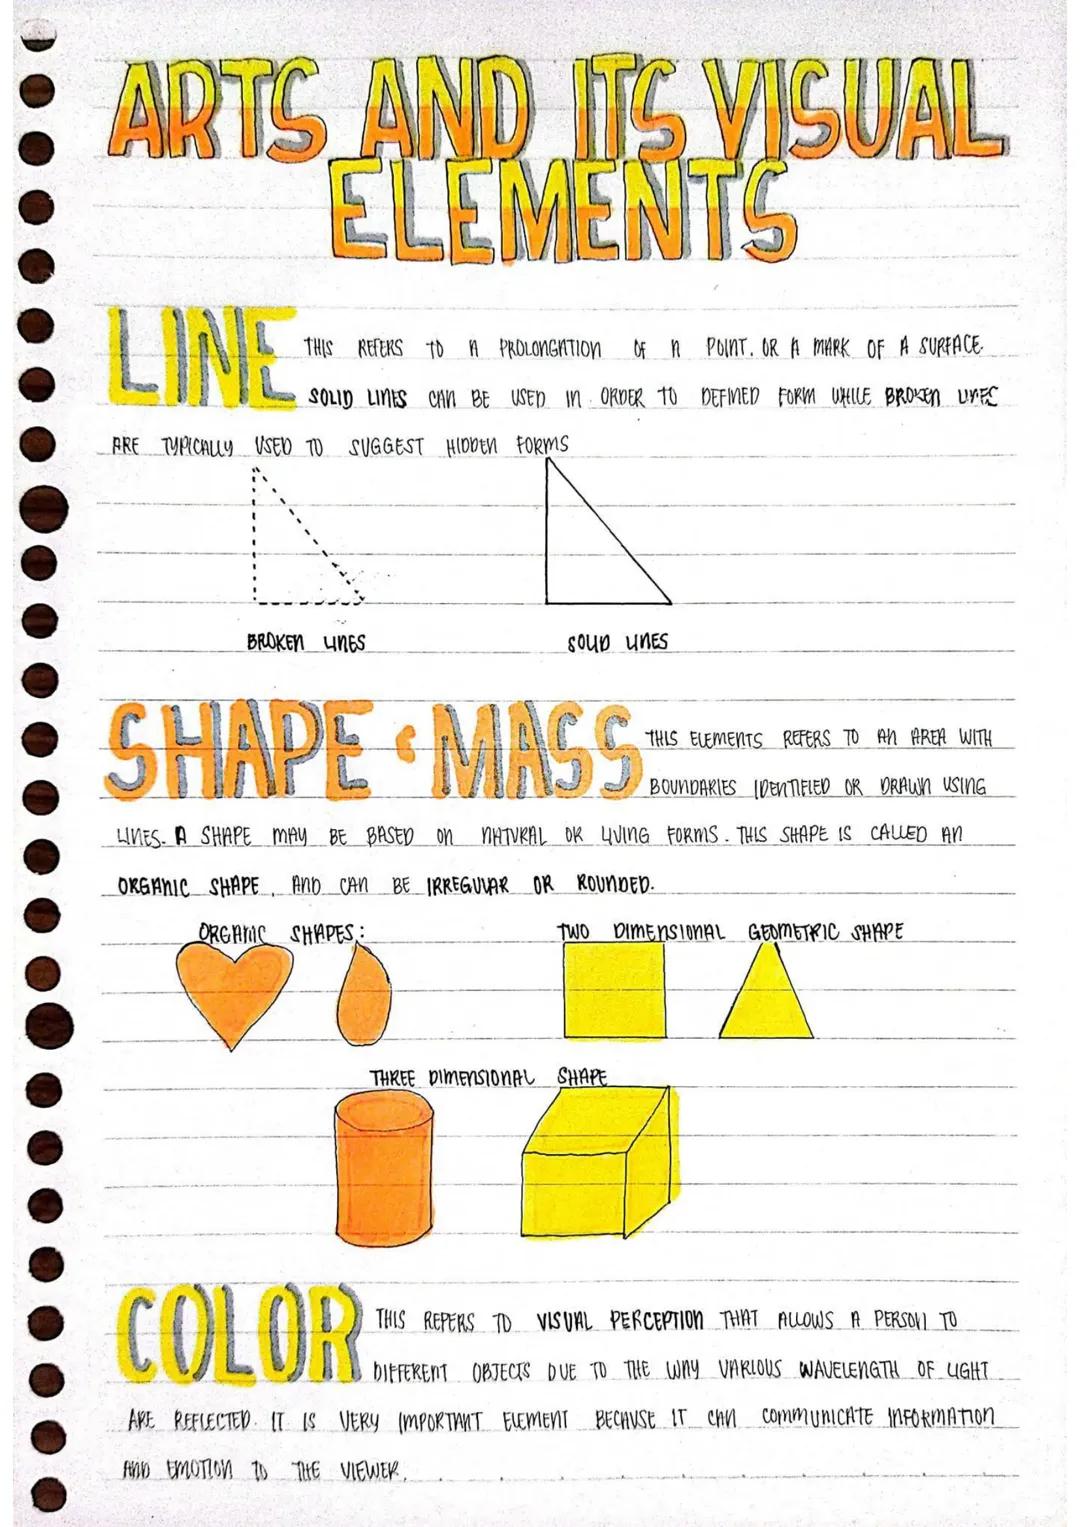 ARTS AND ITS VISUAL
ELEMENTS
LINE
THIS REFERS TO A PROLONGATION OF A POINT. OR A MARK OF A SURFACE.
SOLID LINES CAN BE USED IN ORDER TO DEFINED FORM WHILE BROKEN LINES
ARE TYPICALLY USED TO SUGGEST HIDDEN FORMS
BROKEN LINES
SOLID LINES
SHAPE & MASS
THIS ELEMENTS REFERS TO AN AREA WITH
BOUNDARIES IDENTIFIED OR DRAWN USING
LINES. A SHAPE MAY BE BASED ON NATURAL OR LIVING FORMS. THIS SHAPE IS CALLED AN
ORGANIC SHAPE, AND CAN BE IRREGULAR OR ROUNDED.
ORGANIC SHAPES:
TWO DIMENSIONAL GEOMETRIC SHAPE
THREE DIMENSIONAL SHAPE
COLOR
THIS REPERS TO VISUAL PERCEPTION THAT ALLOWS A PERSON TO
DIFFERENT OBJECTS DUE TO THE WAY VARIOUS WAVELENGTH OF LIGHT
ARE REFLECTED. IT IS VERY IMPORTANT ELEMENT BECAUSE IT CAN COMMUNICATE INFORMATION
AND EMOTION TO THE VIEWER.